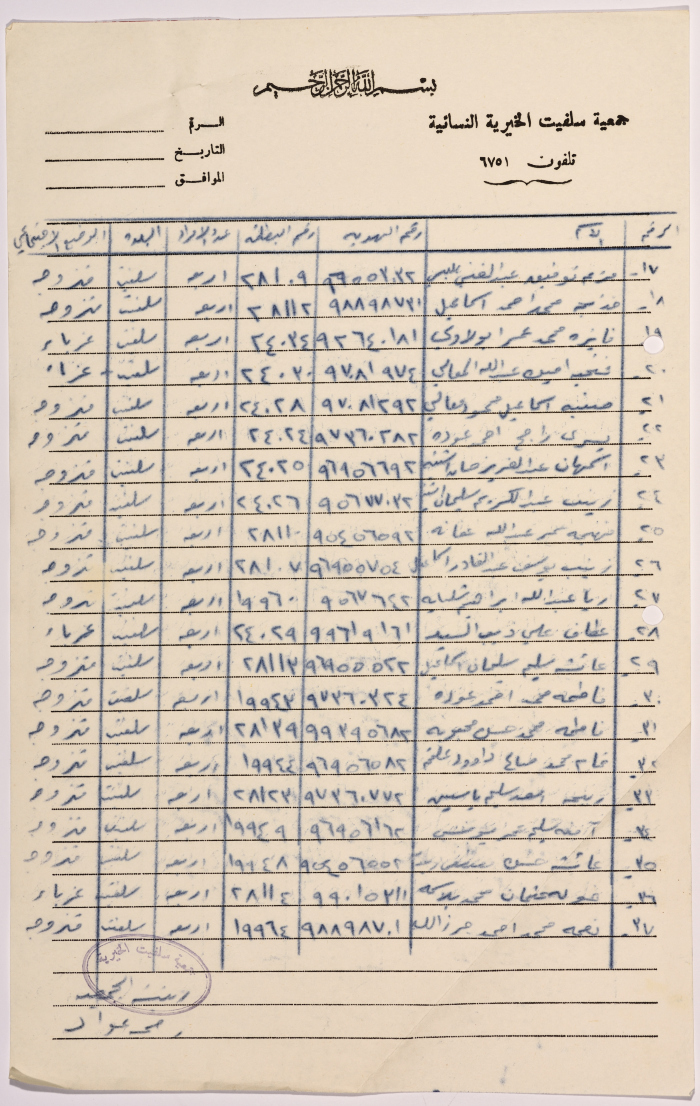 بسم الله الرحمن الرحيم
جمعية سلفيت الخيرية النسائية
تلفون ٦٧٥١
الرقم
التاريخ
الموافق
الرقم الاسم رقم الهوية رقم البطاقة عدد الافراد البلدة الوضع الاجتماعي
١٧- توفيق عبد الغني ٢٨١٠٩ اربعه سلفيت متزوجه
١٨- محمد احمد اسماعيل ٩٨٨٩٨٧٣١ ٢٨١١٢ اربعه سلفيت متزوجه
١٩- فايزه محمد عمر ٩٢٦٤٠١٨١ ٢٤٠٣٤ اربعه سلفيت عزباء
٢٠- فتحيه عبدالله ٩٧٨١٩٧٤ ٢٤٠٣٠ اربعه سلفيت عزباء
٢١- اسماعيل محمود ٩٧٠٨١٢٩٢ ٢٤٠٢٨ اربعه سلفيت متزوجه
٢٢- يسرى راجح احمد عوده ٩٧٣٦٠٢٨٢ ٢٤٠٢٤ اربعه سلفيت متزوجه
٢٣- اسمهان عبدالعزيز ٩٦٩٥٦٦٩٢ ٢٤٠٢٥ اربعه سلفيت متزوجه
٢٤- زينب عبدالكريم سليمان ٩٥٦٧٧٠٣٢ ٢٤٠٢٦ اربعه سلفيت متزوجه
٢٥- فهيمه عبدالله ٩٥٤٥٦٥٩٢ ٢٨١١٠ اربعه سلفيت متزوجه
٢٦- زينب يوسف عبدالقادر اسماعيل ٩٦٩٥٥٧٥٤ ٢٨١٠٧ اربعه سلفيت متزوجه
٢٧- عبدالله ابراهيم ٩٥٦٧٦٤٢ ١٩٩٦٠ اربعه سلفيت متزوجه
٢٨- عطاف علي ٩٩٦١٩١٦١ ٢٤٠٢٩ اربعه سلفيت عزباء
٢٩- عائشه سليم سليمان اسماعيل ٩٦٩٥٥٥٢٢ ٢٨١١٣ اربعه سلفيت متزوجه
٣٠- فاطمه محمد احمد عوده ٩٧٣٦٠٣٢٤ ١٩٩٤٣ اربعه سلفيت متزوجه
٣١- فاطمه محمد حسن ٩٩٣٩٥٦٨٢ ٢٨١٣٩ اربعه سلفيت متزوجه
٣٢- محمد صالح داوود ٩٦٩٥٦٥٨٢ ١٩٩٤٤ اربعه سلفيت متزوجه
٣٣- اسعد سليم ياسين ٩٧٣٦٠٧٧٢ ٢٨١٢٣ اربعه سلفيت متزوجه
٣٤- آمنه سليم عمر ٩٦٩٥٦١٦٢ ١٩٩٤٩ اربعه سلفيت متزوجه
٣٥- عائشه حسن ٩٥٤٥٦٥٥٢ ١٩٩٤٨ اربعه سلفيت متزوجه
٣٦- خوله عثمان محمد ٩٩٠١٥٣١١ ٢٨١١٤ اربعه سلفيت عزباء
٣٧- نعمه محمد احمد حرزالله ٩٨٨٩٨٧٠١ ١٩٩٦٤ اربعه سلفيت متزوجه
جمعية سلفيت الخيرية
رئيسة الجمعيه